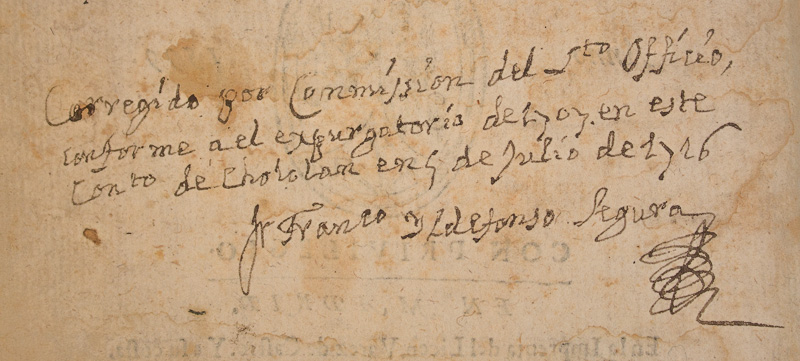 Corregido por Commission del Sto Officio,
conforme a el expurgatorio de 1707. en este
Conto de Chololan en 5 de Julio de 1716
fr Franco Yldefonso Segura
CON PRIVILEGIO
EN MADRID.
En la Imprenta del